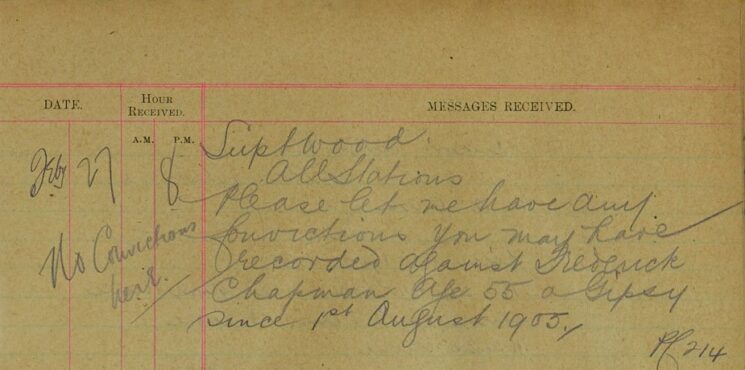 DATE.
HOUR RECEIVED.
MESSAGES RECEIVED.
A.M. P.M.
Supt Wood
All Stations
Feby 27 8
Please let me have any
Convictions you may have
recorded against Frederick
Chapman Age 55 a Gipsy
since 1st August 1905.
No Convictions
here.
PC 214